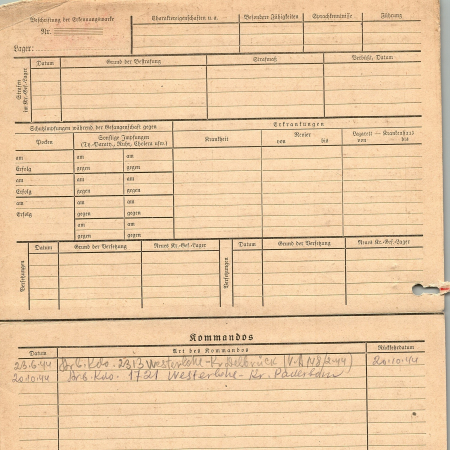 Beschriftung der Erkennungsmarke
Nr.
Lager:
Charaktereigenschaften u. a.
Besondere Fähigkeiten
Sprachkenntnisse
Führung
Strafen im Kr.-Gef.-Lager
Datum
Grund der Bestrafung
Strafmaß
Verbüßt, Datum
Schutzimpfungen während der Gefangenschaft gegen
Erkrankungen
Pocken
Sonstige Impfungen
(Ty.-Paraty., Ruhr, Cholera usw.)
Krankheit
Revier
von bis
Lazarett — Krankenhaus
von bis
am am am
Erfolg gegen gegen
am am am
Erfolg gegen gegen
am am am
Erfolg gegen gegen
am am
gegen gegen
Versetzungen
Datum
Grund der Versetzung
Neues Kr.-Gef.-Lager
Versetzungen
Datum
Grund der Versetzung
Neues Kr.-Gef.-Lager
Kommandos
Datum
Art des Kommandos
Rückkehrdatum
23.6.44 Arb. Kdo. 2313 Westerlohe- 20.10.44
20.10.44 Arb. Kdo. 1721 Westerlohe- Kr. Paderborn